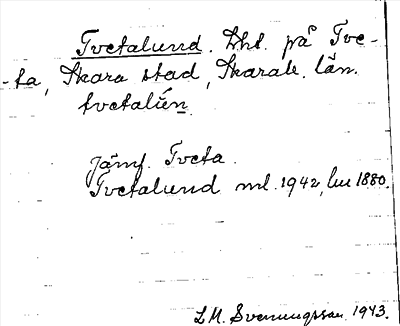 Tvetalund. Lht. på Tve-
-ta, Skara stad, Skarab. län.
tvetalùn.
Jämf. Tveta.
Tvetalund ml. 1942, lm 1880.
L.M. Svenungsson 1943.